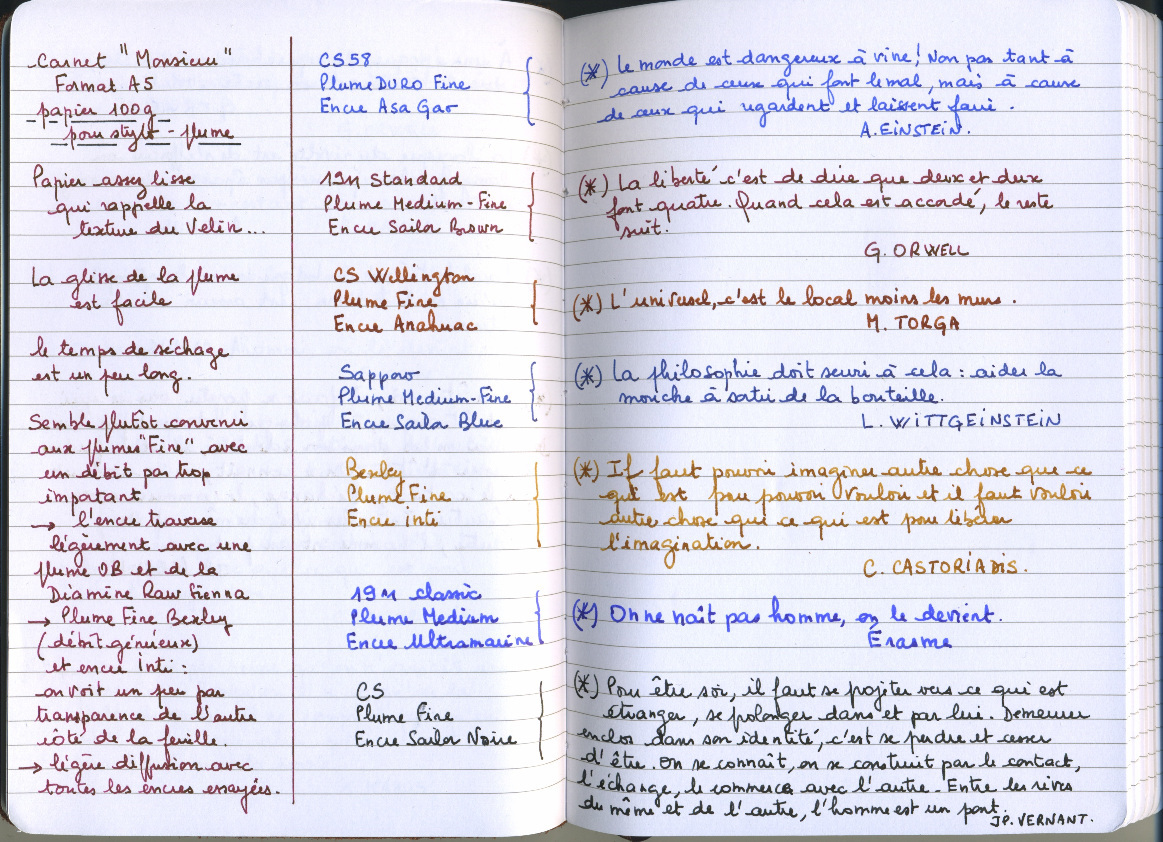 Carnet "Monsieur"
Format A5
papier 100g
pour stylo-plume
Papier assez lisse
qui rappelle la
texture du Velin...
La glisse de la plume
est facile
le temps de séchage
est un peu long.
Semble plutôt convenir
aux plumes "Fine" avec
un débit pas trop
important
→ l'encre traverse
légèrement avec une
plume OB et de la
Diamine Raw Sienna
→ Plume Fine Bexley
(débit généreux)
et encre inti :
on voit un peu par
transparence de l'autre
côté de la feuille.
→ légère diffusion avec
toutes les encres essayées.
CS58
Plume DURO Fine
Encre Asa Gao
1911 Standard
Plume Medium-Fine
Encre Sailor Brown
CS Wellington
Plume Fine
Encre Anahuac
Sapporo
Plume Medium-Fine
Encre Sailor Blue
Bexley
Plume Fine
Encre inti
1911 classic
Plume Medium
Encre Ultramarine
CS
Plume Fine
Encre Sailor Noire
(*) Le monde est dangereux à vivre! Non pas tant à
cause de ceux qui font le mal, mais à cause
de ceux qui regardent et laissent faire.
A.EINSTEIN.
(*) La liberté c'est de dire que deux et deux
font quatre. Quand cela est accordé, le reste
suit.
G. ORWELL
(*) L'universel, c'est le local moins les murs.
M. TORGA
(*) La philosophie doit servir à cela : aider la
mouche à sortir de la bouteille.
L. WITTGEINSTEIN
(*) Il faut pouvoir imaginer autre chose que ce
qui est pour pouvoir vouloir et il faut vouloir
autre chose que ce qui est pour libérer
l'imagination.
C. CASTORIADIS.
(*) On ne naît pas homme, on le devient.
Érasme
(*) Pour être soi, il faut se projeter vers ce qui est
étranger, se prolonger dans et par lui. Demeurer
enclos dans son identité, c'est se perdre et cesser
d'être. On se connaît, on se construit par le contact,
l'échange, le commerce avec l'autre. Entre les rives
du même et de l'autre, l'homme est un pont.
JP. VERNANT.